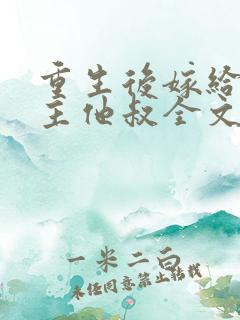 重生後嫁給
主他叔全文
一米二白
未任同意禁止转载